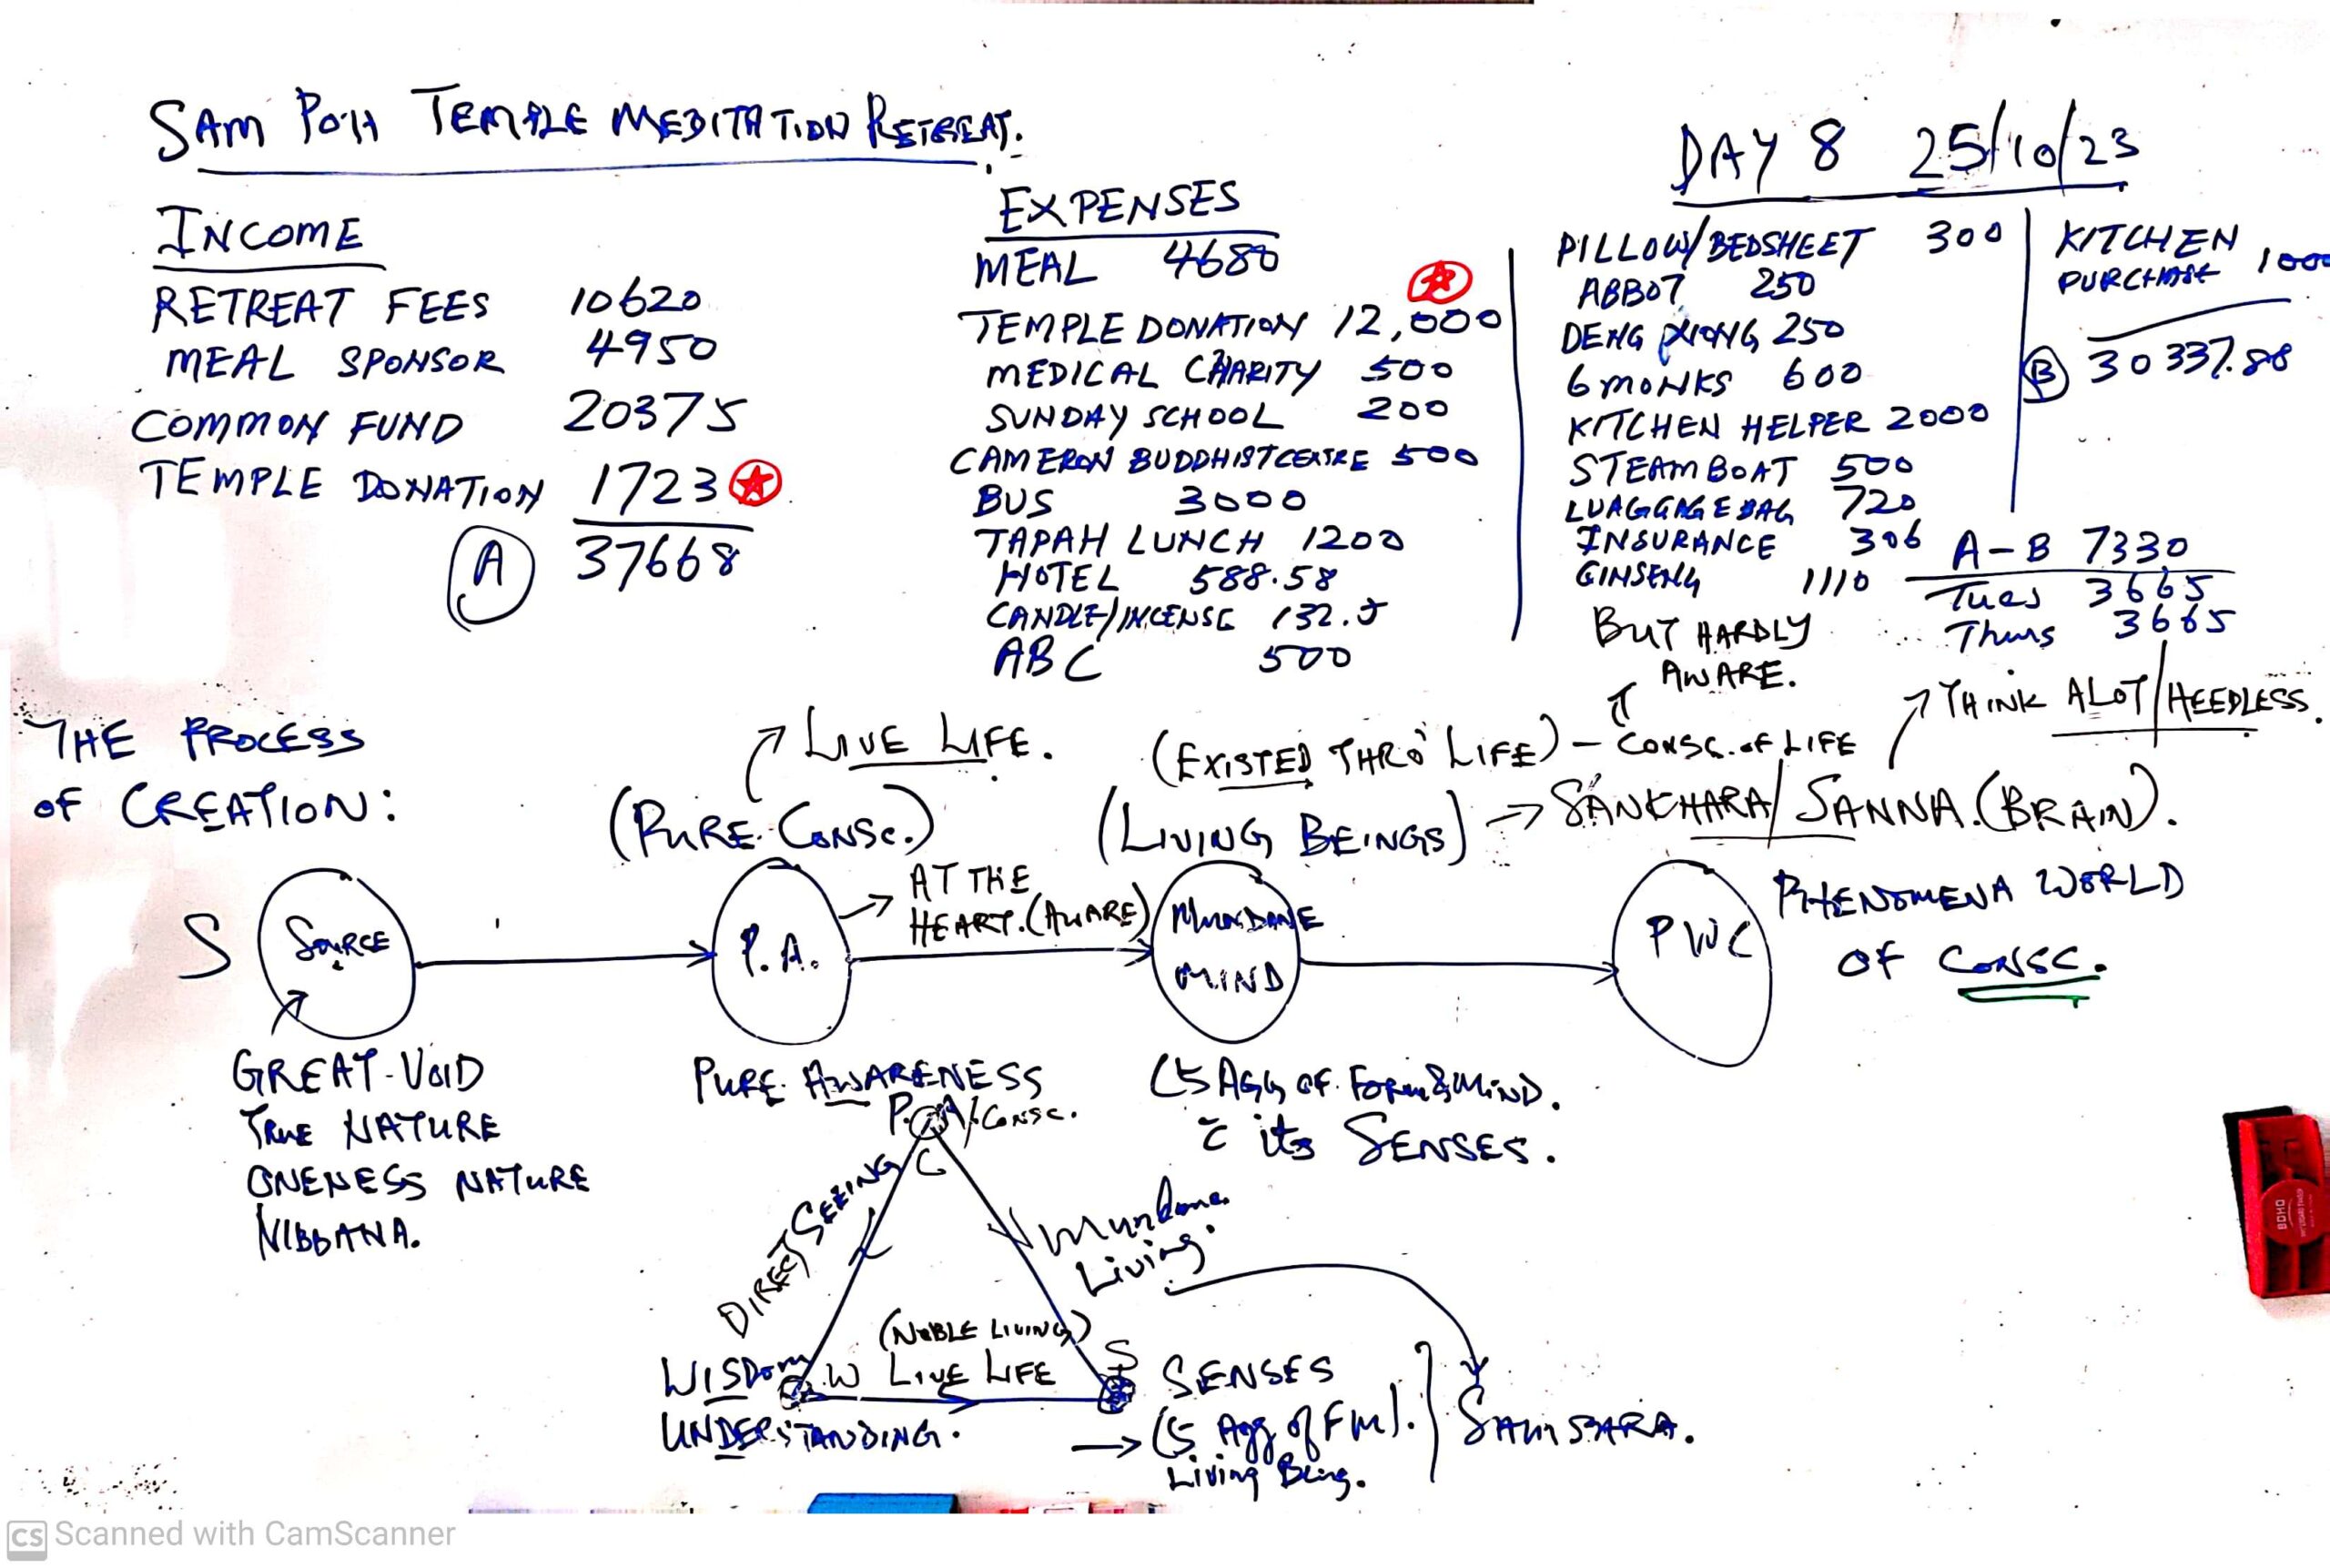 SAM POH TEMPLE MEDITATION RETREAT.
DAY 8 25/10/23
INCOME
RETREAT FEES 10620
MEAL SPONSOR 4950
COMMON FUND 20375
TEMPLE DONATION 1723
A 37668
EXPENSES
MEAL 4680
TEMPLE DONATION 12,000
MEDICAL CHARITY 500
SUNDAY SCHOOL 200
CAMERON BUDDHIST CENTRE 500
BUS 3000
TAPAH LUNCH 1200
HOTEL 588.58
CANDLE/INCENSE 132.5
ABC 500
PILLOW/BEDSHEET 300
ABBOT 250
DENG XIONG 250
6 MONKS 600
KITCHEN HELPER 2000
STEAMBOAT 500
LUAGGAGE BAG 720
INSURANCE 306
GINSENG 1110
KITCHEN
PURCHASE 1000
B 30337.88
A-B 7330
Tues 3665
Thurs 3665
BUT HARDLY
AWARE.
THINK ALOT/HEEDLESS.
THE PROCESS
OF CREATION:
LIVE LIFE.
(EXISTED THRO' LIFE) – CONSC. OF LIFE
(PURE CONSC.)
(LIVING BEINGS) → SANKHARA/SANNA.(BRAIN).
S SOURCE
P.A.
AT THE
HEART.(AWARE)
MUNDANE
MIND
PWC
PHENOMENA WORLD
OF CONSC.
GREAT-VOID
TRUE NATURE
ONENESS NATURE
NIBBANA.
PURE AWARENESS
(5 AGG OF FORM & MIND.
c̄ its SENSES.
P.A/CONSC.
C
DIRECT SEEING
Mundane
Living.
(NOBLE LIVING)
W LIVE LIFE
S
WISDOM
UNDERSTANDING.
SENSES
→ (5 Agg of FM).
Living Being.
SAMSARA.
BOHO
CS Scanned with CamScanner